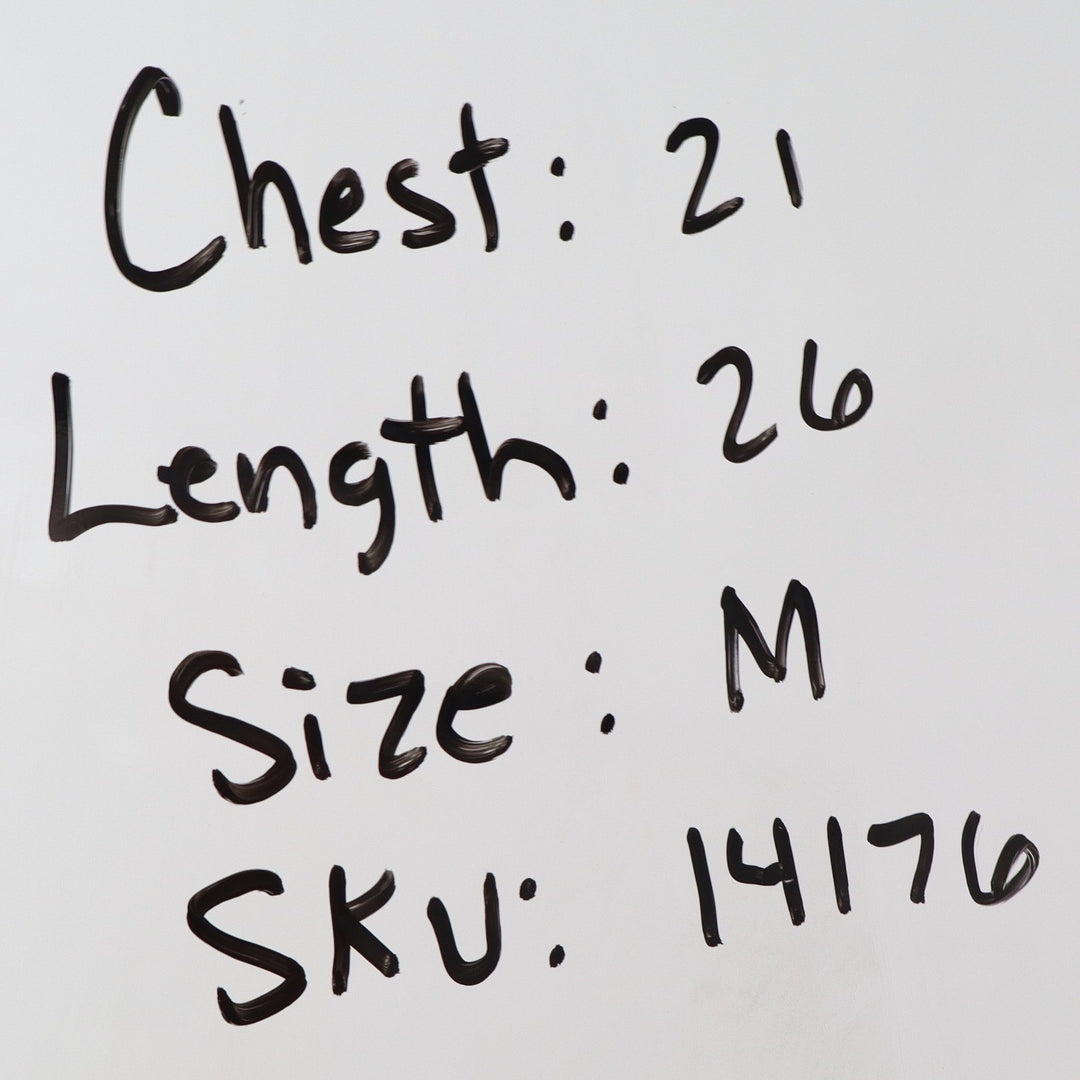 Chest: 21
Length: 26
Size: M
SKU: 14176